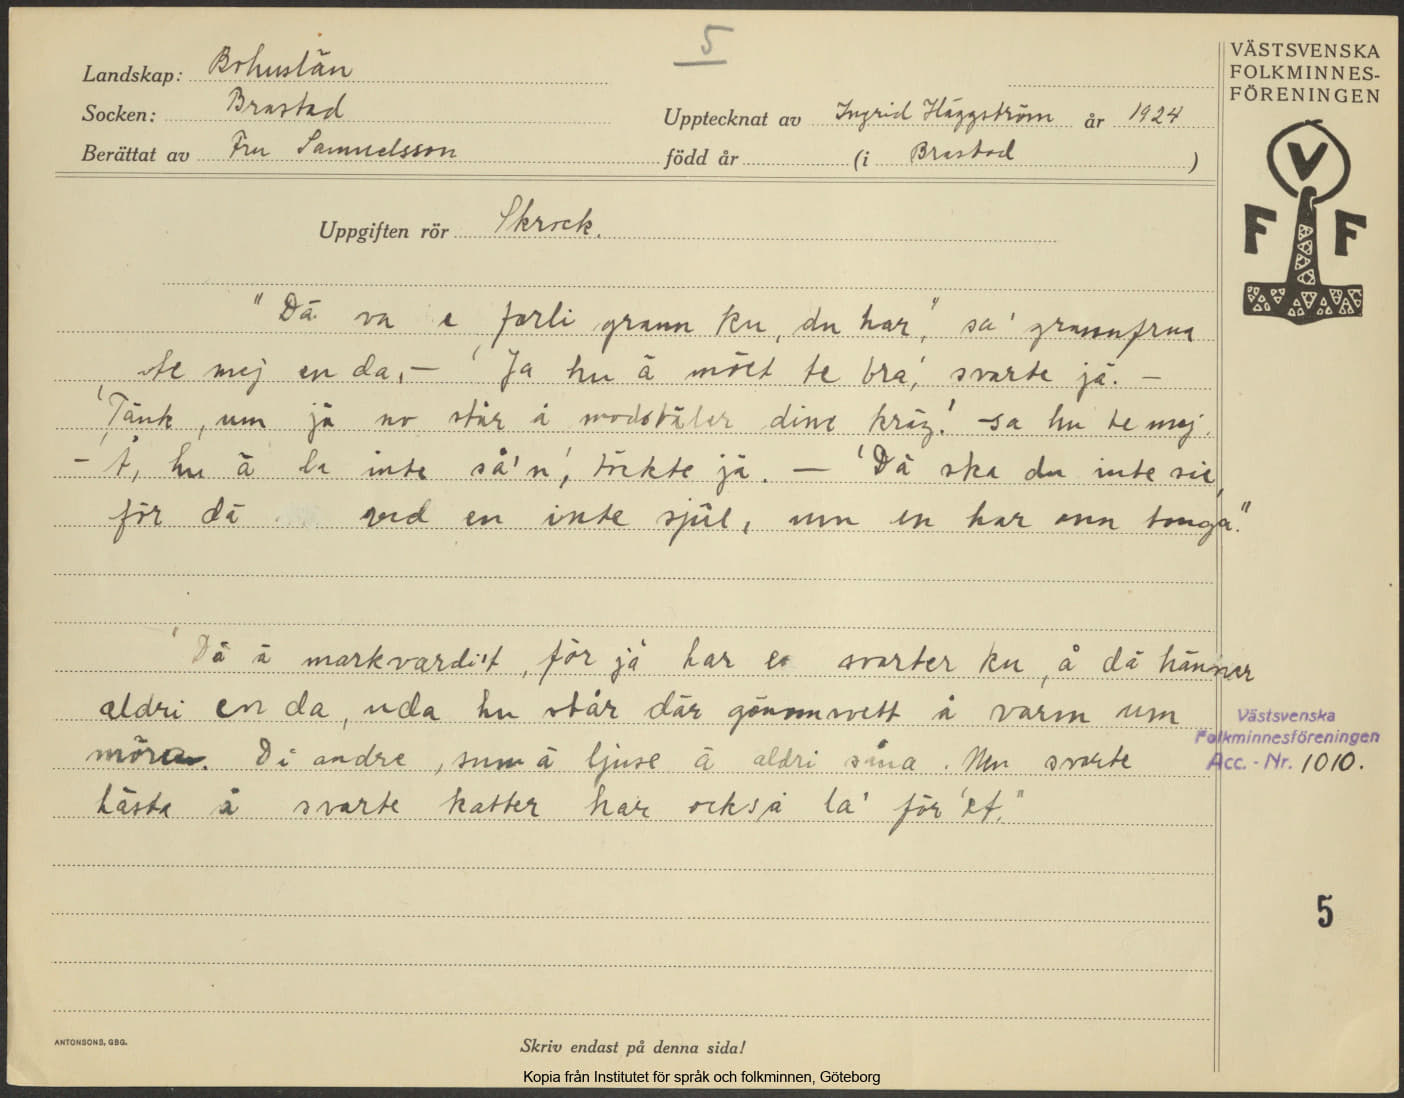 5
Landskap: Bohuslän
Socken: Brastad
Berättat av Fru Samuelsson
Upptecknat av Ingrid Häggström år 1924
född år (i Brastad )
VÄSTSVENSKA
FOLKMINNES-
FÖRENINGEN
V
F F
Uppgiften rör Skrock.
"Dä va e farli grann ku, du har", sa' grannfrua
te mej en da, — 'Ja hu ä möet te bra', svarte jä. —
'Tänk, um jä no står å modstäler dine kräg.' sa hu te mej.
- 'Å, hu ä la inte så'n', töckte jä. — 'Dä ska du inte sie,
för dä ved en inte själ, um en har onn tonga."
'Dä ä markvardit, för jä har e svarter ku, å dä hänner
aldri en da, uda hu står där gönnmvett å varm um
möra. Di andre, sum ä ljuse ä aldri såna. Men svarte
hästa å svarte katter har också la' för 'et."
Västsvenska
Folkminnesföreningen
Acc. - Nr. 1010.
5
ANTONSONS, GBG.
Skriv endast på denna sida!
Kopia från Institutet för språk och folkminnen, Göteborg